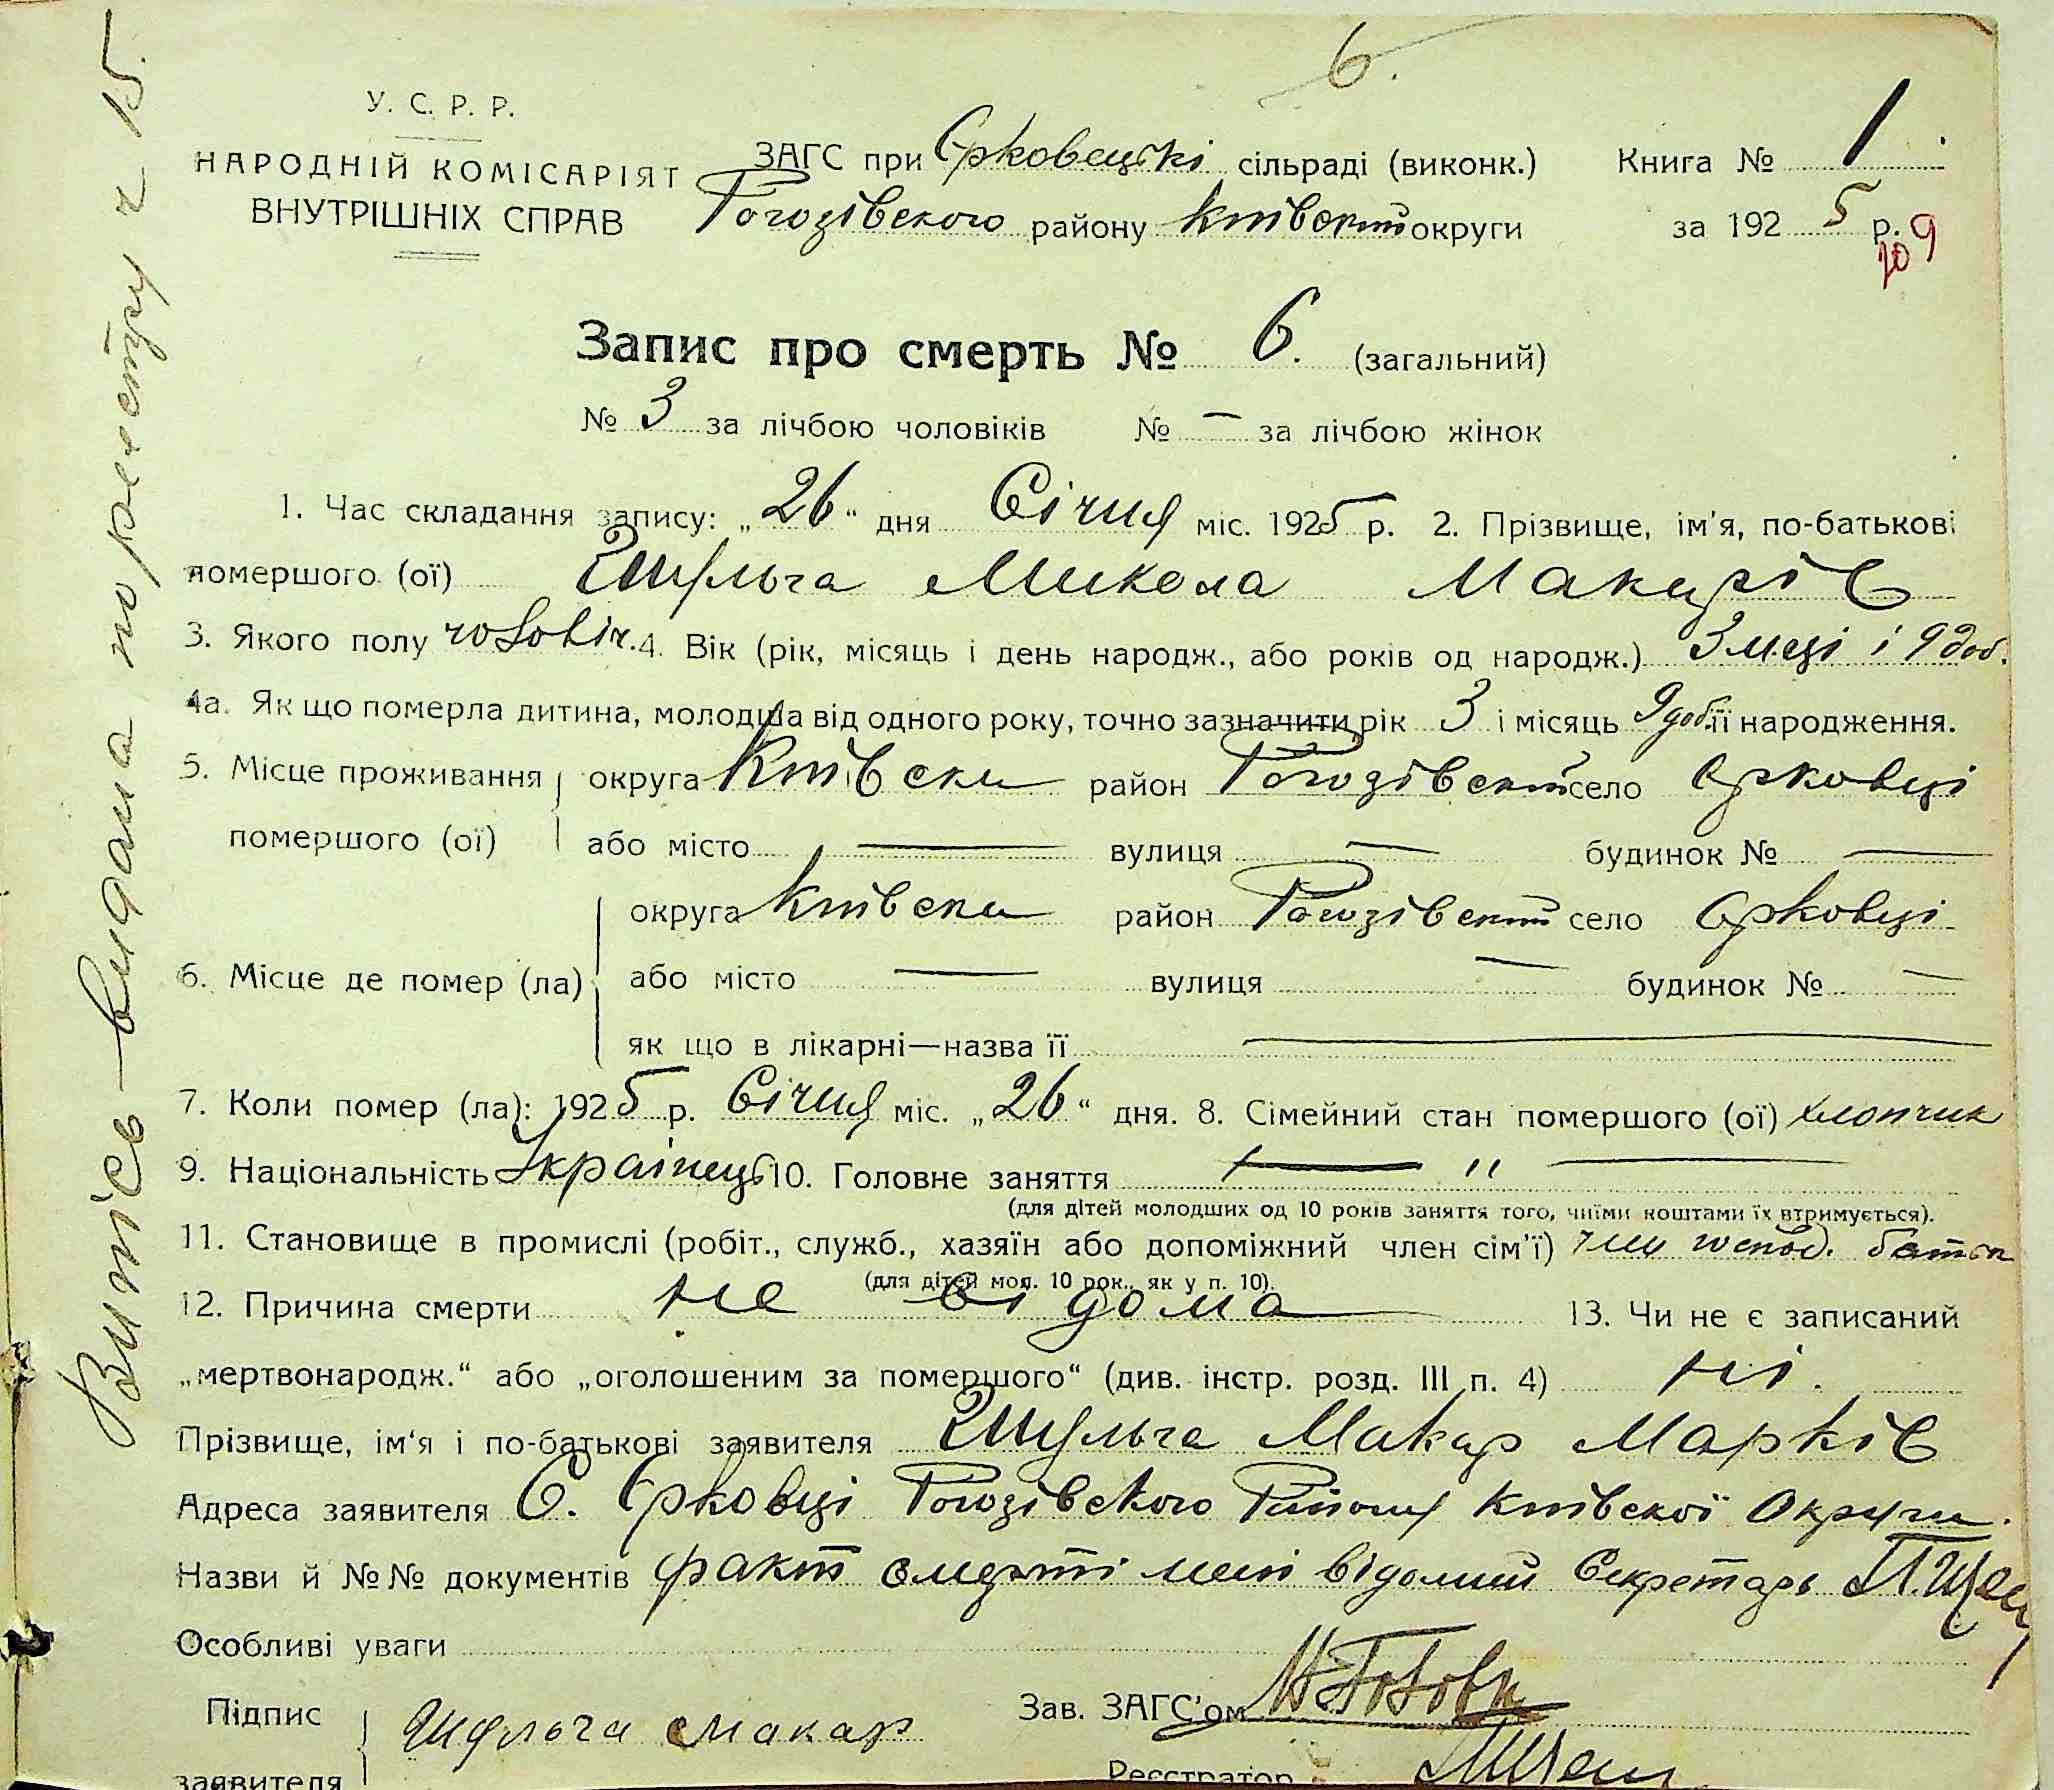 6.
У. С. Р. Р.
НАРОДНІЙ КОМІСАРІЯТ
ВНУТРІШНІХ СПРАВ
ЗАГС при Єрковецькі сільраді (виконк.)
Рогозівського району Київської округи
Книга № 1
за 1925 р.
9
Запис про смерть № 6. (загальний)
№ 3 за лічбою чоловіків № — за лічбою жінок
1. Час складання запису: „26“ дня Січня міс. 1925 р. 2. Прізвище, ім'я, по-батькові
помершого (ої) Шульга Микола Макарів
3. Якого полу чоловіч. 4. Вік (рік, місяць і день народж., або років од народж.) 3 м-ці і 9 доб.
4а. Як що померла дитина, молодша від одного року, точно зазначити рік 3 і місяць 9 доб. її народження.
5. Місце проживання помершого (ої) округа Київська район Рогозівський село Єрковці
або місто — вулиця — будинок № —
6. Місце де помер (ла) округа Київська район Рогозівський село Єрковці
або місто — вулиця — будинок № —
як що в лікарні—назва її —
7. Коли помер (ла): 1925 р. Січня міс. „26“ дня. 8. Сімейний стан помершого (ої) хлопчик
9. Національність Українець 10. Головне заняття — „ —
(для дітей молодших од 10 років заняття того, чиїми коштами їх втримується).
11. Становище в промислі (робіт., служб., хазяїн або допоміжний член сім'ї) батька
(для дітей мол. 10 рок., як у п. 10).
12. Причина смерти не відома 13. Чи не є записаний
„мертвонародж.“ або „оголошеним за помершого“ (див. інстр. розд. III п. 4) ні.
Прізвище, ім'я і по-батькові заявителя Шульга Макар Марків
Адреса заявителя С. Єрковці Рогозівського Району Київскої Округи.
Назви й №№ документів факт смерті мені відомий Секретарь
Особливі уваги
Підпис заявителя Шульга Макар
Зав. ЗАГС'ом
Реєстратор
Витяг видана по реєстру ч 15.